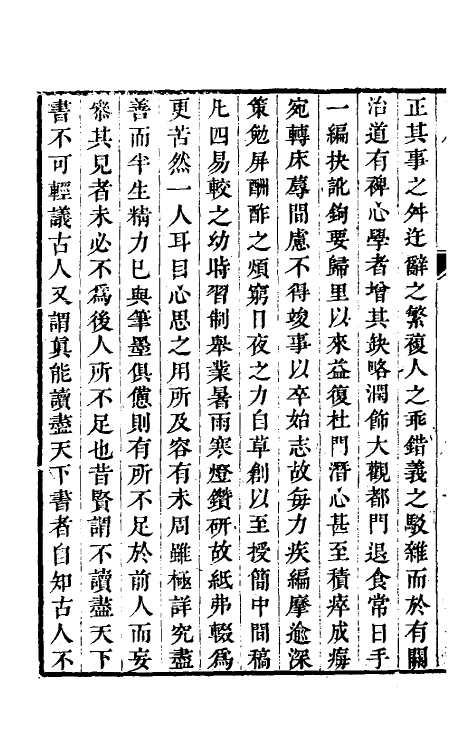 正其事之舛迕辭之繁複人之乖錯義之駁雜而於有關
治道有裨心學者增其缺略潤飾大觀都門退食常日手
一編抉訛鉤要歸里以來益復杜門潛心甚至積瘁成痗
宛轉床蓐間慮不得竣事以卒始志故每力疾編摩逾深
策勉屏酬酢之煩窮日夜之力自草創以至授簡中間稿
凡四易較之幼時習制舉業暑雨寒燈鑽研故紙弗輟爲
更苦然一人耳目心思之用所及容有未周雖極詳究盡
善而半生精力已與筆墨俱憊則有所不足於前人而妄
叅其見者未必不爲後人所不足也昔賢謂不讀盡天下
書不可輕議古人又謂眞能讀盡天下書者自知古人不